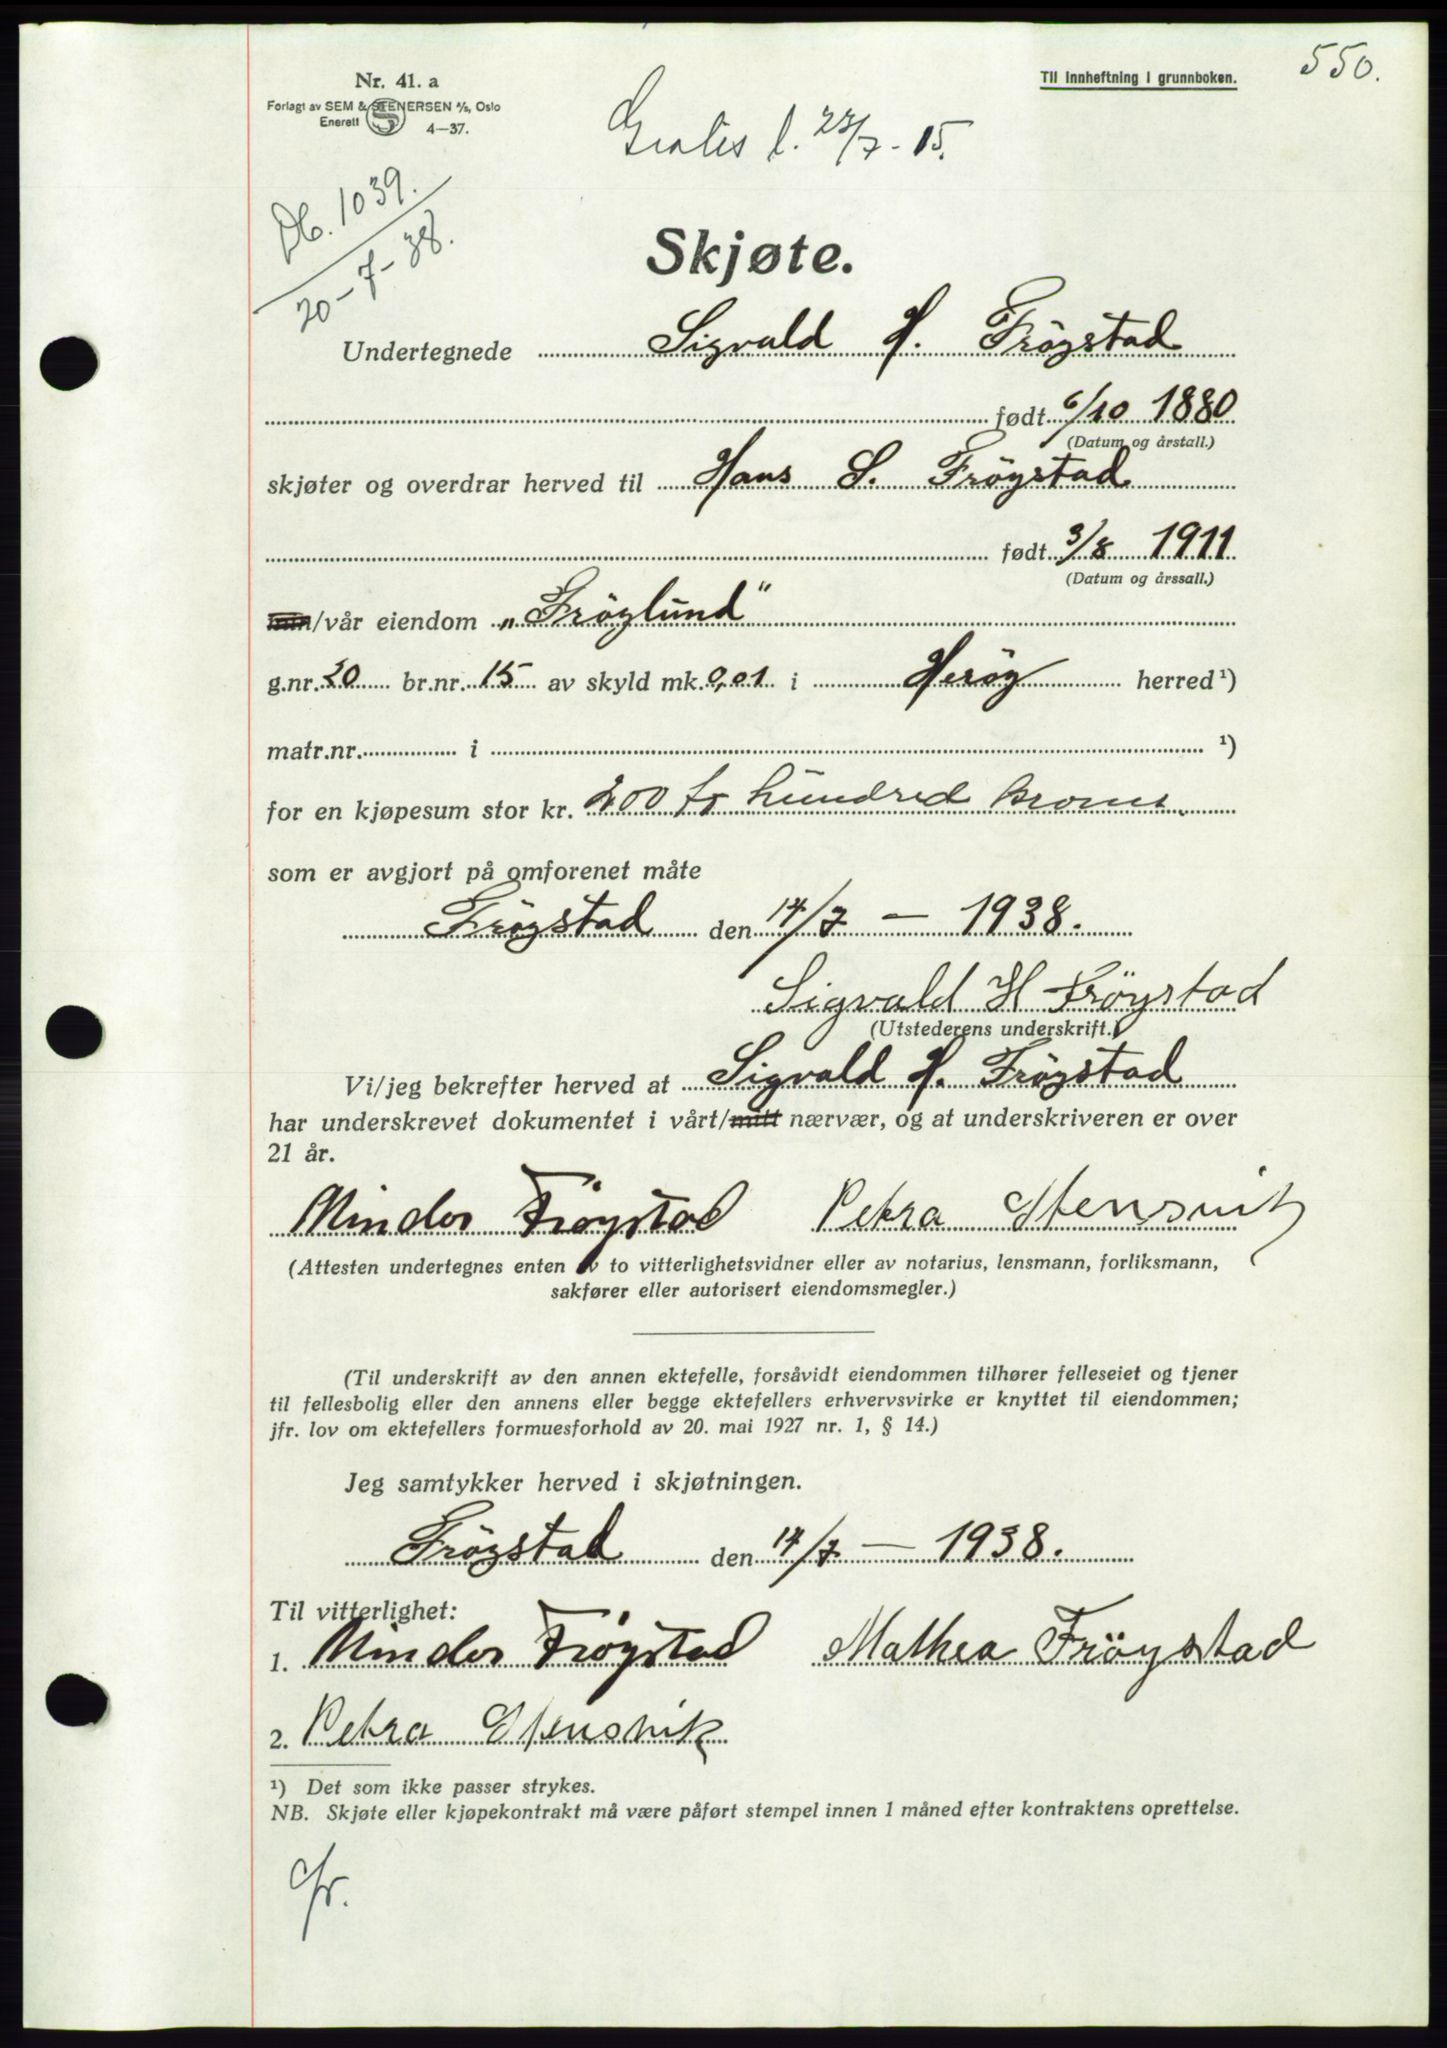 550.
Nr. 41. a
Til innheftning i grunnboken.
Forlagt av SEM & STENERSEN A/S, Oslo
Enerett 4—37.
Gratis l. 23/7 - 15.
Db. 1039.
20-7-38.
Skjøte.
Undertegnede Sigvald H. Fröystad
født 6/10 1880
(Datum og årstall.)
skjøter og overdrar herved til Hans S. Fröystad
født 3/8 1911
(Datum og årssall.)
min/vår eiendom „Fröylund"
g.nr. 20 br.nr. 15 av skyld mk. 0,01 i Heröy herred¹)
matr.nr. i ¹)
for en kjøpesum stor kr. 200 to hundred kroner
som er avgjort på omforenet måte
Fröystad den 14/7 — 1938.
Sigvald H Fröystad
(Utstederens underskrift.)
Vi/jeg bekrefter herved at Sigvald H. Fröystad
har underskrevet dokumentet i vårt/mitt nærvær, og at underskriveren er over
21 år.
Mindor Fröystad Petra Stensvik
(Attesten undertegnes enten av to vitterlighetsvidner eller av notarius, lensmann, forliksmann,
sakfører eller autorisert eiendomsmegler.)
(Til underskrift av den annen ektefelle, forsåvidt eiendommen tilhører felleseiet og tjener
til fellesbolig eller den annens eller begge ektefellers erhvervsvirke er knyttet til eiendommen;
jfr. lov om ektefellers formuesforhold av 20. mai 1927 nr. 1, § 14.)
Jeg samtykker herved i skjøtningen.
Fröystad den 14/7 — 1938.
Til vitterlighet:
1. Mindor Fröystad Mathea Fröystad
2. Petra Stensvik
¹) Det som ikke passer strykes.
NB. Skjøte eller kjøpekontrakt må være påført stempel innen 1 måned efter kontraktens oprettelse.